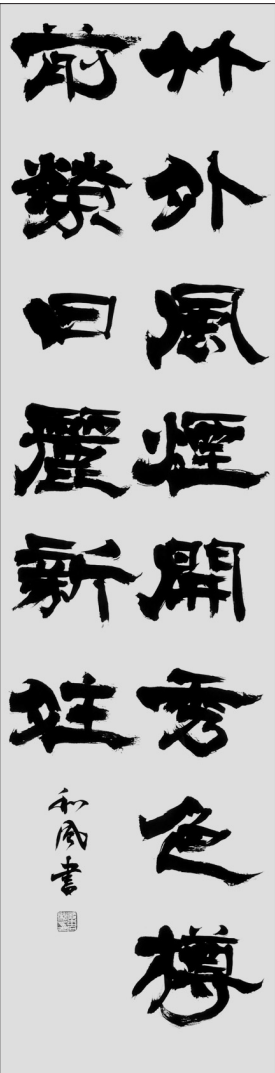 竹外風煙開秀色樽
前日麗新
和風書